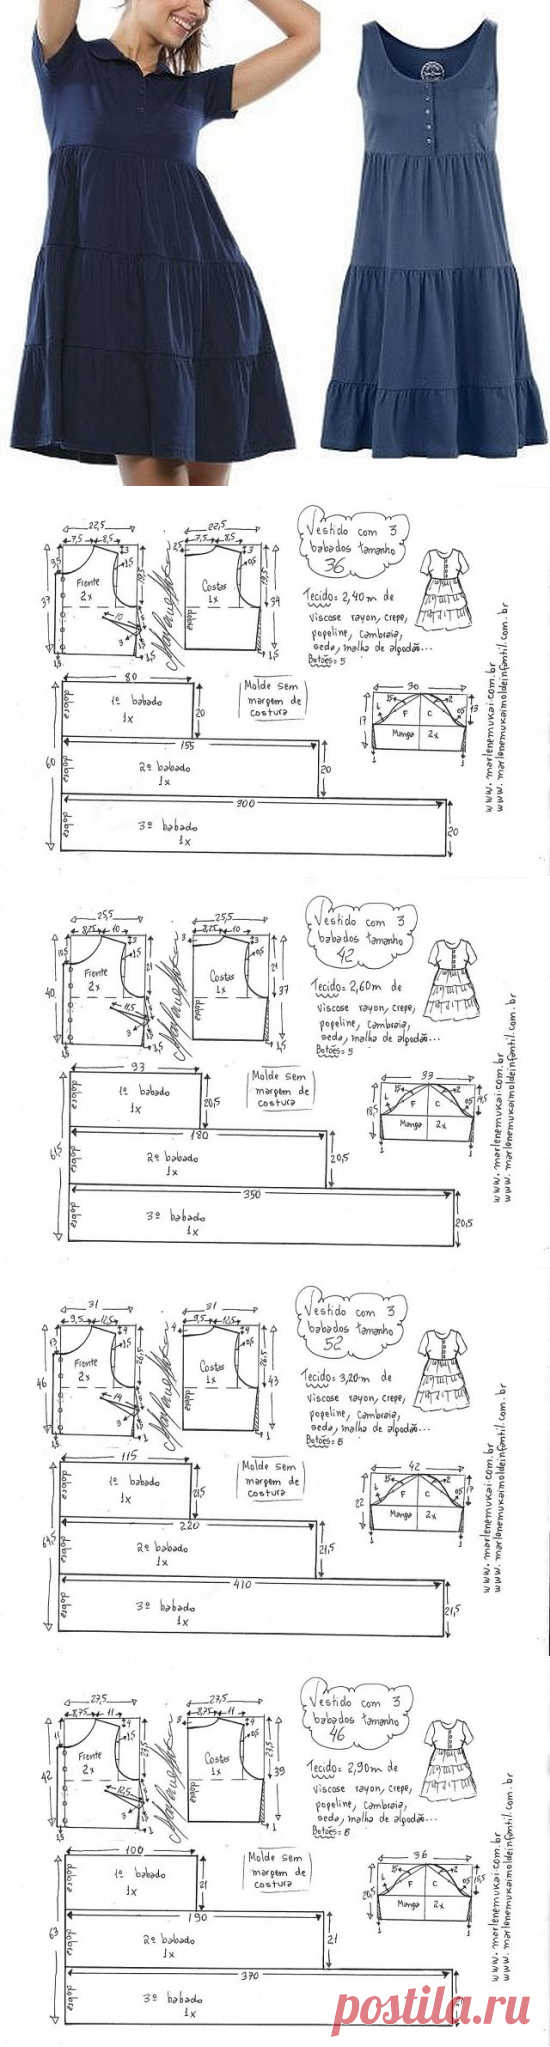 22,5
7,5
8,5
3
1,5
9,5
37
Frente
2x
19,5
10
3
1,5
1,5
22,5
7,5
8,5
2,5
0,5
Costas
1x
19,5
34
dobra
1,5
Vestido com 3
babados tamanho
36
Tecido= 2,40m de
viscose rayon, crepe,
popeline, cambraia,
seda, malha de algodão...
Botões= 5
80
dobra
1º babado
1x
20
Molde sem
margem de
costura
155
60
dobra
2º babado
1x
20
300
dobra
3º babado
1x
20
30
17
1,5
2
13
1
F
C
0,5
Manga
2x
1
1
www.marlenemukai.com.br
www.marlenemukaimoldeinfantil.com.br
25,5
8,25
10
3
1,5
10,5
40
Frente
2x
21
11,5
3
1,5
1,5
25,5
8,25
10
3
0,5
Costas
1x
21
37
dobra
1,5
Vestido com 3
babados tamanho
42
Tecido= 2,60m de
viscose rayon, crepe,
popeline, cambraia,
seda, malha de algodão...
Botões= 5
93
dobra
1º babado
1x
20,5
Molde sem
margem de
costura
180
61,5
dobra
2º babado
1x
20,5
350
dobra
3º babado
1x
20,5
33
18,5
1,5
2
14,5
1
F
C
0,5
Manga
2x
1
1
www.marlenemukai.com.br
www.marlenemukaimoldeinfantil.com.br
31
9,5
12,5
4
1,5
13
46
Frente
2x
26,5
14
3
1,5
1
31
9,5
12,5
4
0,5
Costas
1x
26,5
43
dobra
1
Vestido com 3
babados tamanho
52
Tecido= 3,20m de
viscose rayon, crepe,
popeline, cambraia,
seda, malha de algodão...
Botões= 5
115
dobra
1º babado
1x
21,5
Molde sem
margem de
costura
220
64,5
dobra
2º babado
1x
21,5
410
dobra
3º babado
1x
21,5
42
22
1,5
2
17
1
F
C
0,5
Manga
2x
1
1
www.marlenemukai.com.br
www.marlenemukaimoldeinfantil.com.br
27,5
8,75
11
4
1,5
11
42
Frente
2x
23,5
12,5
3
1,5
1
27,5
8,75
11
3
0,5
Costas
1x
23,5
39
dobra
1
Vestido com 3
babados tamanho
46
Tecido= 2,90m de
viscose rayon, crepe,
popeline, cambraia,
seda, malha de algodão...
Botões= 5
100
dobra
1º babado
1x
21
Molde sem
margem de
costura
190
63
dobra
2º babado
1x
21
370
dobra
3º babado
1x
36
20,5
1,5
2
15,5
1
F
C
0,5
Manga
2x
1
1
www.marlenemukai.com.br
www.marlenemukaimoldeinfantil.com.br
postila.ru